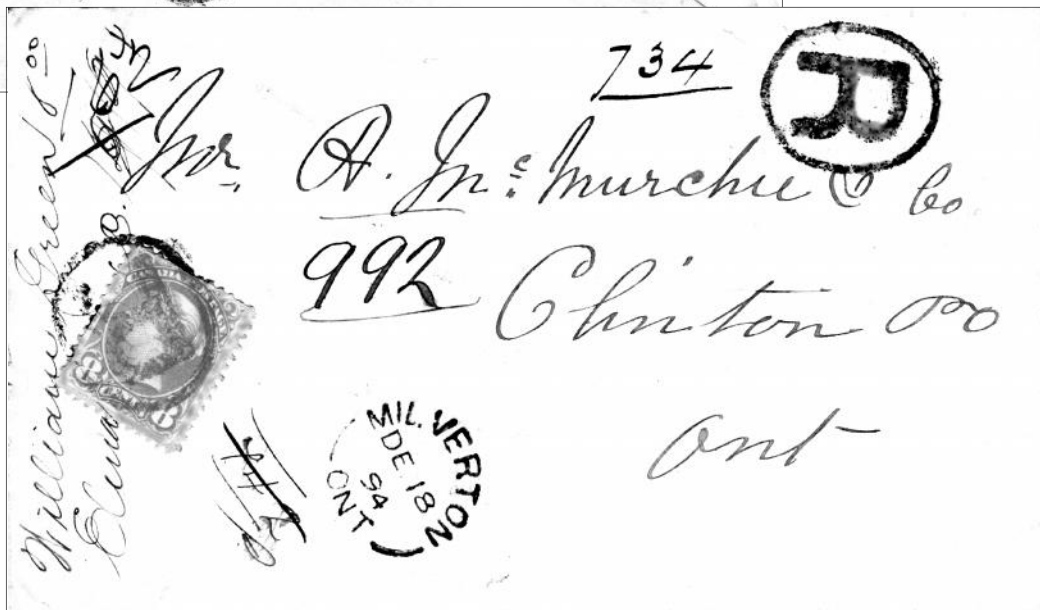 734
R
Mr. A. Mc. Murchie & Co
992
Clinton PO
Ont
MILVERTON
DE 18
94
ONT
William Green 8 00
Elma
CANADA POSTAGE
8 CENTS 8